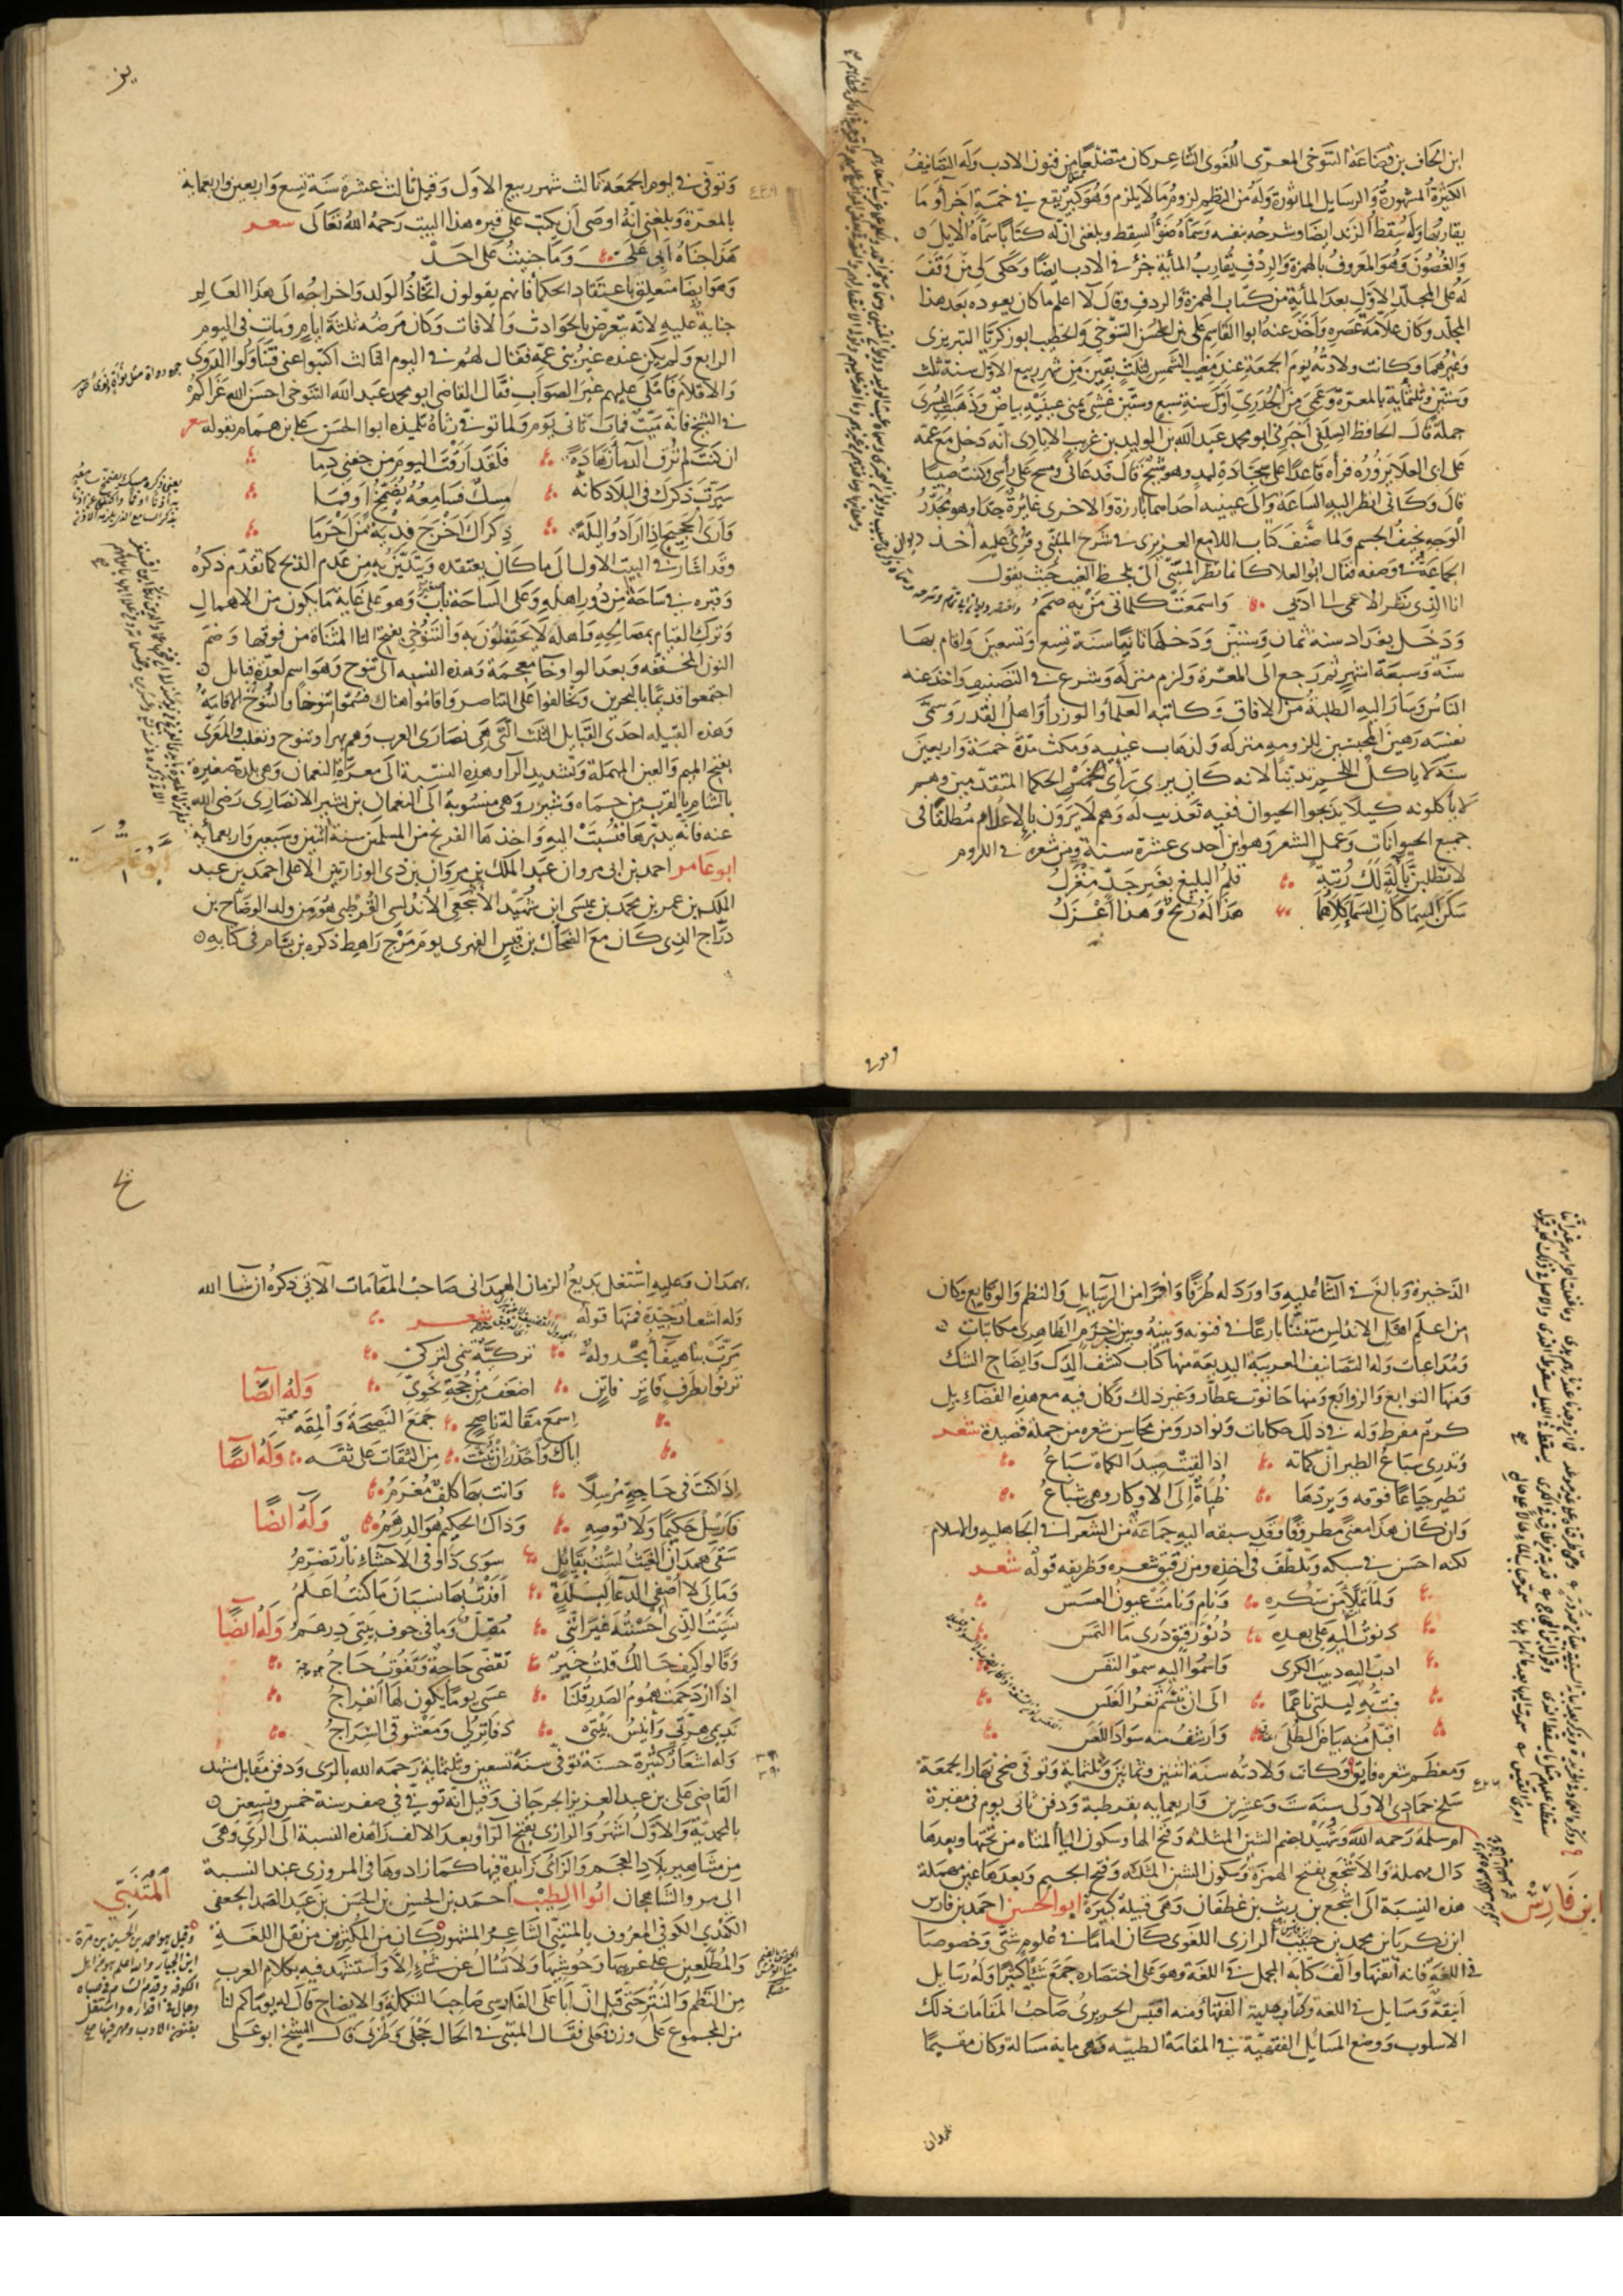 ابن الحاف بن قضاعة التنوخي المعري اللغوي الشاعر كان متضلعا من فنون الادب وله التصانيف
الكثيرة المشهورة والرسايل الماثورة وله من النظم لزوم ما لا يلزم وهو كبير يقع في خمسة اجزاء او ما
يقاربها وله سقط الزند ايضا وشرحه بنفسه وسماه ضوء السقط وبلغني ان له كتابا سماه الايك
والغصون وهو المعروف بالهمزة والردف يقارب المأية جزء في الادب ايضا وحكى لي من وقف
له على المجلد الاول بعد المأية من كتاب الهمزة والردف وقال لا اعلم ما كان يعوده بعد هذا
المجلد وكان علامة عصره واخذ عنه ابوا القاسم علي بن المحسن التنوخي والخطيب ابو زكريا التبريزي
وغيرهما وكانت ولادته يوم الجمعة عند مغيب الشمس لثلث بقين من شهر ربيع الاول سنة ثلث
وستين وثلثماية بالمعرة وعمي من الجدري اول سنة سبع وستين غشي يمنى عينيه بياض وذهبت اليسرى
جملة قال الحافظ السلفي اخبرني ابو محمد عبد الله بن الوليد بن غريب الايادي انه دخل مع عمه
على ابي العلا يزوره فراه قاعدا على سجادة لبد وهو شيخ قال فدعا لي ومسح على رأسي وكنت صبيا
قال وكاني انظر اليه الساعة والى عينيه احداهما بارزة والاخرى غايرة جدا وهو مجدر
الوجه نحيف الجسم ولما صنف كتاب اللامع العزيزي في شرح المتنبي وقرئ عليه اخذ
الجماعة في وصفه فقال ابو العلا كانما نظر المتنبي الي بلحظ الغيب حيث يقول
انا الذي نظر الاعمى الى ادبي واسمعت كلماتي من به صمم
ودخل بغداد سنة ثمان وتسعين ودخلها ثانيا سنة تسع وتسعين واقام بها
سنة وسبعة اشهر ثم رجع الى المعرة ولزم منزله وشرع في التصنيف واخذ عنه
الناس وسار اليه الطلبة من الافاق وكاتبه العلماء والوزراء واهل القدر وسمى
نفسه رهين المحبسين للزومه منزله ولذهاب عينيه ومكث مدة خمسة واربعين
سنة لا ياكل اللحم تدينا لانه كان يرى رأي الحكما المتقدمين وهم
لا ياكلونه كيلا يذبحوا الحيوان ففيه تعذيب له وهم لا يرون بالايلام مطلقا في
جميع الحيوانات وعمل الشعر وهو ابن احدى عشرة سنة ومن شعره في اللزوم
لا تطلبن بآلة لك رتبة قلم البليغ بغير جد مغزل
سكن السماكان السما كلاهما هذا له رمح وهذا اعزل
وتوفي
وتوفي في يوم الجمعة ثالث شهر ربيع الاول وقيل ثالث عشرة سنة تسع واربعين واربعماية
٤٤٩
بالمعرة وبلغني انه اوصى ان يكتب على قبره هذا البيت رحمه الله تعالى شعر
هذا جناه ابي علي وما جنيت على احد
وهو ايضا متعلق باعتقاد الحكما فانهم يقولون اتخاذ الولد واخراجه الى هذا العالم
جناية عليه لانه يتعرض بالحوادث والافات وكان مرضه ثلثة ايام ومات في اليوم
الرابع ولم يكن عنده غير بني عمه فقال لهم في اليوم الثالث اكتبوا عني فتناولوا الدوى
والاقلام فاملى عليهم غير الصواب فقال القاضي ابو محمد عبد الله التنوخي احسن الله عزاكم
في الشيخ فانه ميت فمات ثاني يوم ولما توفي رثاه تلميذه ابوا الحسن علي بن همام بقوله شعر
ان كنت لم ترق الدما زهادة فلقد ارقت اليوم من جفني دما
سيرت ذكرك في البلاد كانه مسك فسامعه يضمخ او فما
وارى الحجيج اذا ارادوا ليلة ذكراك اخرج فدية من احرما
وقد اشار في البيت الاول الى ما كان يعتقده ويتدين به من عدم الذبح كما تقدم ذكره
وقبره في ساحة من دور اهله وعلى الساحة باب وهو على غاية ما يكون من الاهمال
وترك القيام بمصالحه واهله لا يحتفلون به والتنوخي بفتح التا المثناة من فوقها وضم
النون المخففة وبعد الواو خا معجمة وهذه النسبة الى تنوخ وهو اسم لعدة قبايل
اجتمعوا قديما بالبحرين وتحالفوا على التناصر واقاموا هناك فسموا تنوخا والتنوخ الاقامة
وهذه القبيلة احدى القبايل الثلث التي هي نصارى العرب وهم بهرا وتنوخ وتغلب والمعري
بفتح الميم والعين المهملة وتشديد الرا وهذه النسبة الى معرة النعمان وهي بلدة صغيرة
بالشام بالقرب من حماه وشيزر وهي منسوبة الى النعمان بن بشير الانصاري رضي الله
عنه فانه تديرها فنسبت اليه واخذها الفرنج من المسلمين سنة اثنين وتسعين واربعمأية
ابو عامر احمد بن ابي مروان عبد الملك بن مروان بن ذي الوزارتين الاعلى احمد بن عبد
الملك بن عمر بن محمد بن عيسى ابن شهيد الاشجعي الاندلسي القرطبي هو من ولد الوضاح بن
دراج الذي كان مع الضحاك بن قيس الفهري يوم مرج راهط ذكره بن بسام في كتابه
الذخيرة وبالغ في الثنا عليه واورد له طرفا وافرا من الرسايل والنظم والوقايع وكان
من اعلم اهل الاندلس متفننا بارعا في فنونه وبينه وبين ابن حزم الظاهري مكاتبات
ومداعبات وله التصانيف الغريبة البديعة منها كتاب كشف الدك وايضاح الشك
ومنها التوابع والزوابع ومنها حانوت عطار وغير ذلك وكان فيه مع هذه الفضايل
كرم مفرط وله في ذلك حكايات ونوادر ومن محاسن شعره من جملة قصيدة شعر
وتدري سباع الطير ان كماته اذا لقيت صيد الكماة سباع
تطير جياعا فوقه ويردها ظباه الى الاوكار وهي شباع
وان كان هذا معنى مطروقا وقد سبقه اليه جماعة من الشعرا في الجاهلية والاسلام
لكنه احسن في سبكه وتلطف في اخذه ومن رقيق شعره وظريفه قوله شعر
ولما تملا من سكره ونام ونامت عيون العسس
دنوت اليه على بعده دنو رفيق درى ما التمس
ادب اليه دبيب الكرى واسموا اليه سمو النفس
فبت به ليلتي ناعما الى ان تبسم ثغر الغلس
اقبل منه بياض الطلى وارشف منه سواد اللعس
ومعظم شعره فايق وكانت ولادته سنة اثنين وثمانين وثلثماية وتوفي ضحى نهار الجمعة
سلخ جمادى الاولى سنة ست وعشرين واربعماية بقرطبة ودفن ثاني يوم في مقبرة
٤٢٦
ام سلمة رحمه الله وشهيد بضم الشين المثلثة وفتح الها وسكون اليا المثناه من تحتها وبعدها
دال مهملة والاشجعي بفتح الهمزة وسكون الشين المثلثة وفتح الجيم وبعدها عين مهملة
هذه النسبة الى اشجع بن ريث بن غطفان وهي قبيلة كبيرة ابو الحسين احمد بن فارس
ابن فارس
ابن زكريا بن محمد بن حبيب الرازي اللغوي كان اماما في علوم شتى وخصوصا
في اللغة فانه اتقنها والف كتابه المجمل في اللغة وهو على اختصاره جمع شيئا كثيرا وله رسايل
انيقة ومسايل في اللغة وتعايا بها الفقها ومنه اقتبس الحريري صاحب المقامات ذلك
الاسلوب ووضع المسايل الفقهية في المقامة الطيبية وهي ماية مسالة وكان مقيما
بهمدان
بهمدان وعليه اشتغل بديع الزمان الهمداني صاحب المقامات الآتي ذكره ان شا الله
وله اشعار جيدة فمنها قوله شعر
مرت بنا هيفا مجدولة تركية تنمى لتركي
ترنو بطرف فاتر فاتن اضعف من حجة نحوي وله ايضا
اسمع مقالة ناصح جمع النصيحة والمقه
اياك واحذر ان تبيت من الثقات على ثقه وله ايضا
اذا كنت في حاجة مرسلا وانت بها كلف مغرم
فارسل حكيما ولا توصه وذاك الحكيم هو الدرهم وله ايضا
سقى همدان الغيث لست بقايل سوى ذا وفي الاحشاء نار تضرم
وما لي لا اصفي الدعا لبلدة افدت بها نسيان ما كنت اعلم
نسيت الذي احسنته غير انني مدين وما في جوف بيتي درهم وله ايضا
وقالوا كيف حالك قلت خير تقضى حاجة وتفوت حاج
اذا ازدحمت هموم الصدر قلنا عسى يوما يكون لها انفراج
نديمي هرتي وانيس بيتي دفاتر لي ومعشوقي السراج
وله اشعار كثيرة حسنة توفي سنة تسعين وثلثماية رحمه الله بالري ودفن مقابل مشهد
٣٩٠
القاضي علي بن عبد العزيز الجرجاني وقيل انه توفي في صفر سنة خمس وتسعين
بالمحمدية والاول اشهر والرازي بفتح الرا وبعد الالف زا هذه النسبة الى الري وهي
من مشاهير بلاد العجم والزاي زايدة فيها كما زادوها في المروزي عند النسبة
الى مرو الشاهجان ابوا الطيب احمد بن الحسين بن الحسن بن عبد الصمد الجعفي
المتنبي
الكندي الكوفي المعروف بالمتنبي الشاعر المشهور كان من المكثرين من نقل اللغة
والمطلعين على غريبها وحوشيها ولا تسال عن شيء الا واستشهد فيه بكلام العرب
من النظم والنثر حتى قيل ان ابا علي الفارسي صاحب التكملة والايضاح قال له يوما كم لنا
من المجموع على وزن فعلى فقال المتنبي في الحال حجلى وظربى قال الشيخ ابو علي
وقيل هو احمد بن الحسين بن مرة
ابن الجبار والله اعلم هو من اهل
الكوفة وقدم الشام في صباه
وجال في اقطاره واشتغل
بفنون الادب ومهر فيها